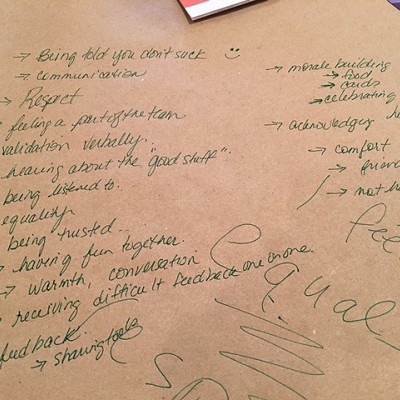 → Being told you don't suck :)
→ communication
→ Respect
feeling a part of the team
validation verbally.
hearing about the "good stuff".
being listened to.
equality
being trusted..
→ having fun together.
→ warmth, conversation
receiving difficult feedback one on one.
feedback.
→ sharing tools
→ morale building
→ food
→ cards
→ celebrating
→ acknowledging
→ comfort
→ friend
→ not
fee
qual